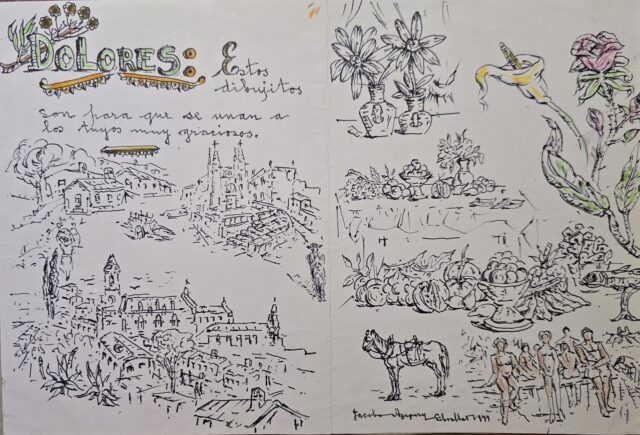 DOLORES: Estos
dibujitos
son para que se unan a
los tuyos muy graciosos.
Jacobo Azagury Gibraltar 1977